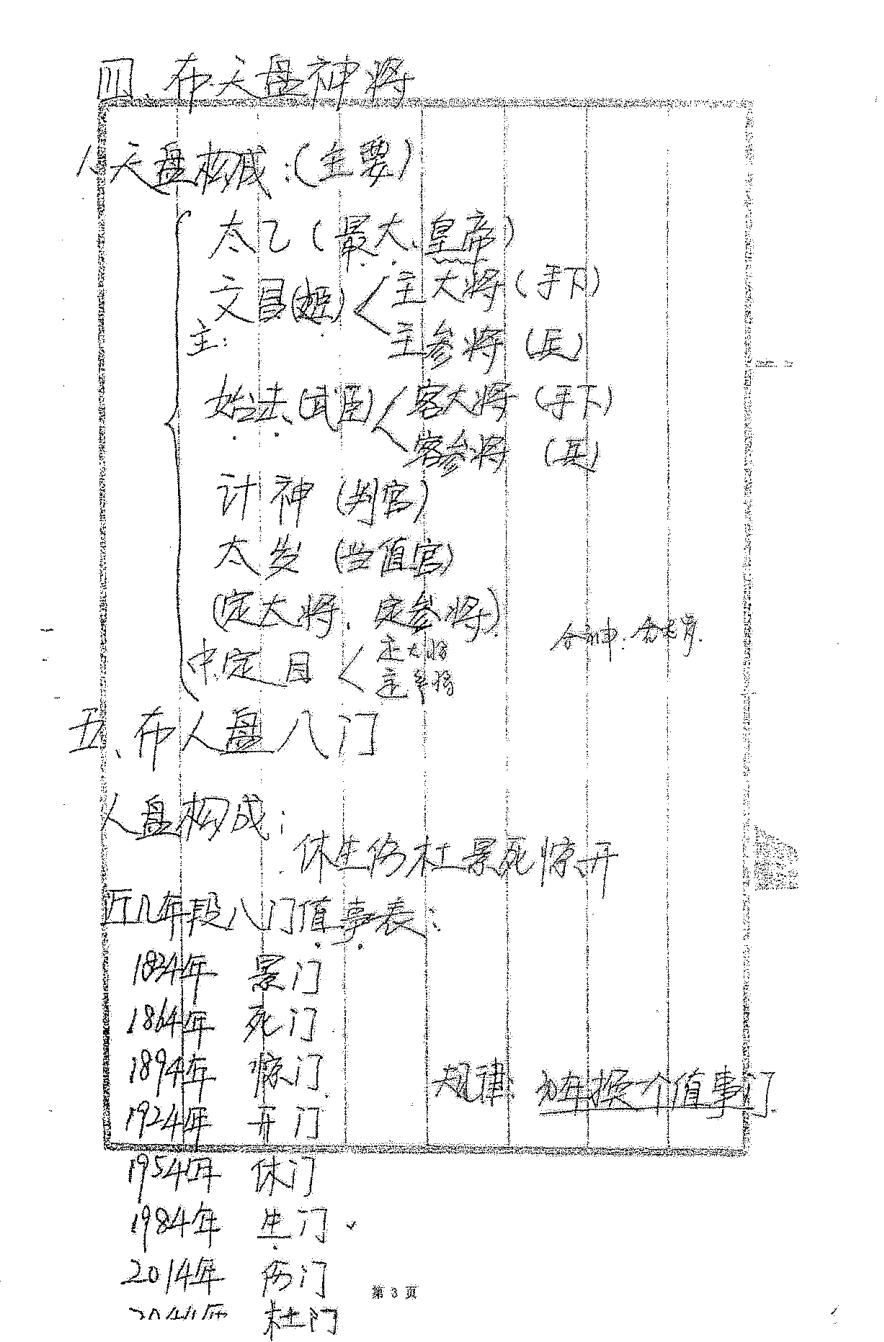 四、布天盘神将
1、天盘构成：(主要)
太乙(最大、皇帝)
文昌( ) 主大将(手下)
主： 主参将(兵)
始击(武臣) 客大将(手下)
客参将(兵)
计神(判官)
太岁(当值官)
(定大将、定参将)
合神：合太岁.
中定目 主大将
主参将
五、布人盘八门
人盘构成：
休生伤杜景死惊开
近几年段八门值事表：
1834年 景门
1864年 死门
1894年 惊门
规律：30年换一个值事门.
1924年 开门
1954年 休门
1984年 生门 ✓
2014年 伤门
第 3 页
2044年 杜门